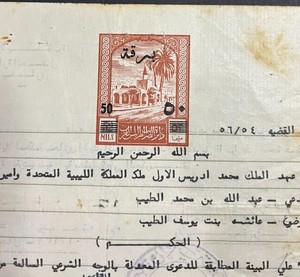 برقة
50 ٥٠
MILS
القضيه ٥٦/٥٤
بسم الله الرحمن الرحيم
عهد الملك محمد ادريس الاول ملك المملكة الليبية المتحدة وامير
عبد الله بن محمد الطيب
عائشه بنت يوسف الطيب
( الحكم )
علي البينة المطابقة للدعوى المعدلة بالوجه الشرعي السالمة